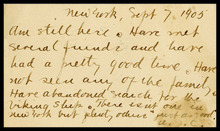 New York, Sept 7, 1905
Am still here. Have met
several friends and have
had a pretty good time. Have
not seen any of the family.
Have abandoned search for the
Viking Ship. There is not one in
New York but plenty others